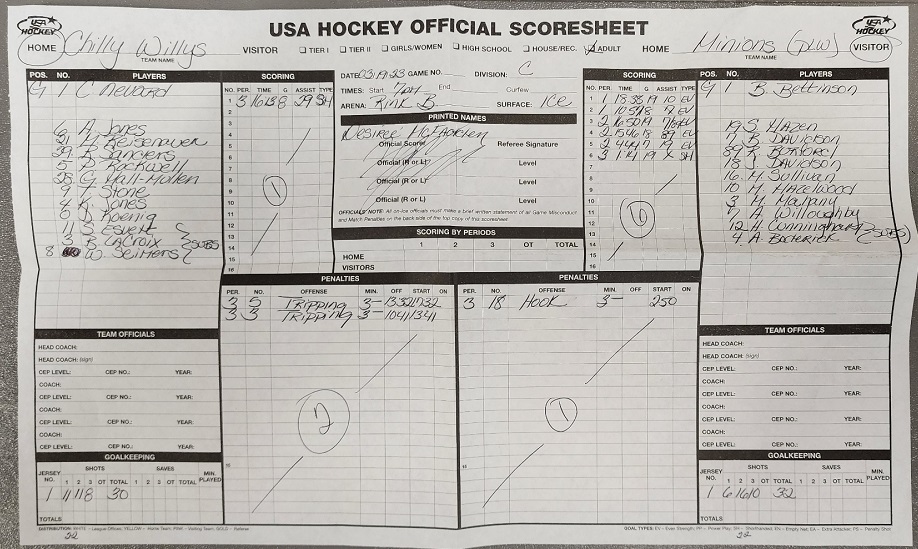 USA HOCKEY OFFICIAL SCORESHEET
USA HOCKEY
HOME Chilly Willys
TEAM NAME
VISITOR ☐ TIER I ☐ TIER II ☐ GIRLS/WOMEN ☐ HIGH SCHOOL ☐ HOUSE/REC. ☑ ADULT
HOME Minions (DLW) VISITOR
TEAM NAME
USA HOCKEY
POS. NO. PLAYERS
G 1 C. Nevoard
6 A. Jones
29 Sanders
5 Rockwell
38 G. Hall-Hollen
9 T. Stone
4 K. Jones
Koenig
3 B. LaCroix SUBS
8 W. Seitters
SCORING
PER. TIME G ASSIST TYPE
1 3 1613 8 29 SH
1
DATE 03/19/23 GAME NO. DIVISION: C
TIMES: Start 7pm End Curfew
ARENA: Rink B SURFACE: ICE
PRINTED NAMES
Desiree McFadden
Official Scorer Referee Signature
Official (R or L) Level
Official (R or L) Level
Official (R or L) Level
OFFICIALS NOTE: All on-ice officials must make a brief written statement of all Game Misconduct and Match Penalties on the back side of the top copy of this scoresheet
SCORING BY PERIODS
1 2 3 OT TOTAL
HOME
VISITORS
SCORING
PER. TIME G ASSIST TYPE
6
POS. NO. PLAYERS
G 1 B. Bettinson
19 S. Hazen
7 B. Davidson
89 R. Buxford
18 J. Davidson
16 M. Sullivan
10 M. Hazelwood
3 M. Mahany
7 A. Willoughby
12 H. Cunningham SUBS
4 A. Boderick
PENALTIES
PER. NO. OFFENSE MIN. OFF START ON
3 5 TRIPPING 3- 1332 1732
3 3 TRIPPING 3- 1041 1341
2
PENALTIES
PER. NO. OFFENSE MIN. OFF START ON
3 18 HOOK 3- 250
1
TEAM OFFICIALS
HEAD COACH:
HEAD COACH: (sign)
CEP LEVEL: CEP NO.: YEAR:
COACH:
CEP LEVEL: CEP NO.: YEAR:
COACH:
CEP LEVEL: CEP NO.: YEAR:
COACH:
CEP LEVEL: CEP NO.: YEAR:
GOALKEEPING
JERSEY NO. SHOTS SAVES MIN. PLAYED
1 2 3 OT TOTAL 1 2 3 OT TOTAL
1 11 11 8 30
TOTALS
TEAM OFFICIALS
HEAD COACH:
HEAD COACH: (sign)
CEP LEVEL: CEP NO.: YEAR:
COACH:
CEP LEVEL: CEP NO.: YEAR:
COACH:
CEP LEVEL: CEP NO.: YEAR:
COACH:
CEP LEVEL: CEP NO.: YEAR:
GOALKEEPING
JERSEY NO. SHOTS SAVES MIN. PLAYED
1 2 3 OT TOTAL 1 2 3 OT TOTAL
1 6 16 10 32
TOTALS
DISTRIBUTION: WHITE - League Offices; YELLOW - Home Team; PINK - Visiting Team; GOLD - Referee
GOAL TYPES: EV - Even Strength, PP - Power Play, SH - Shorthanded, EN - Empty Net, EA - Extra Attacker, PS - Penalty Shot
22
22